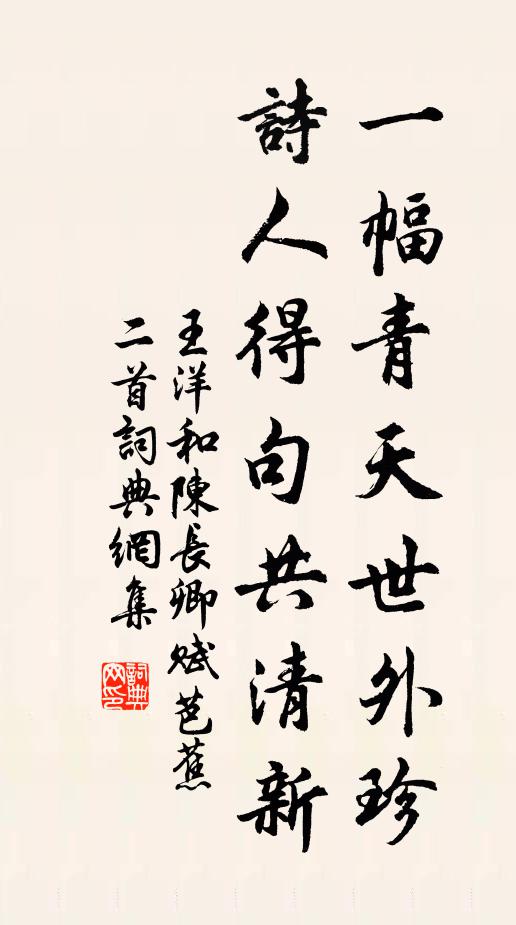 一幅青天世外珍
詩人得句共清新
王洋和陳長卿赋芭蕉
二首詞典網集
詞典
网印